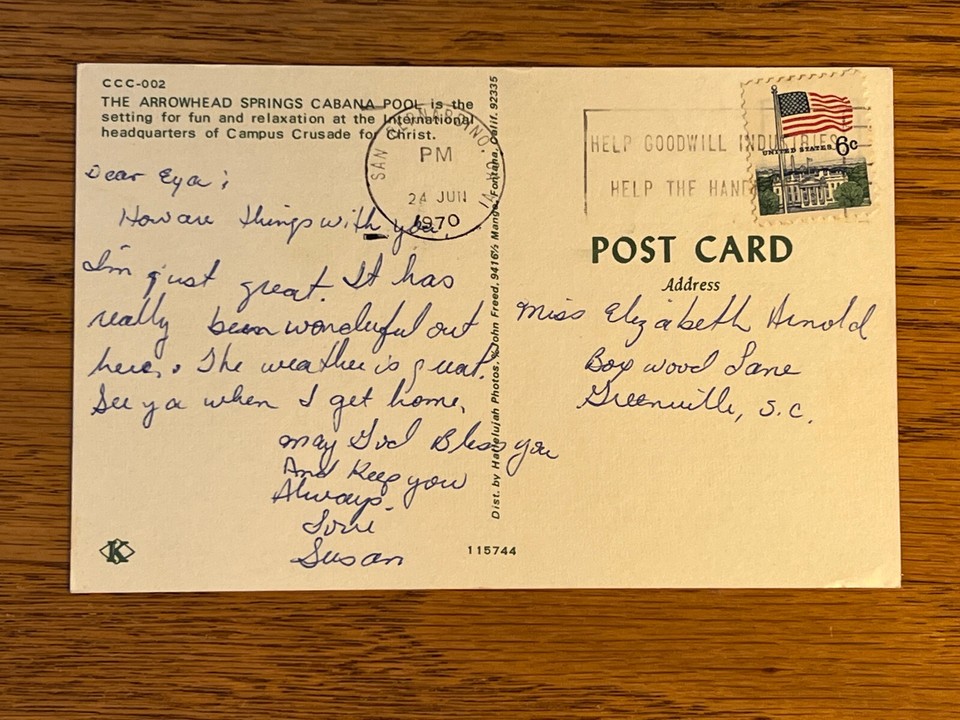 CCC-002
THE ARROWHEAD SPRINGS CABANA POOL is the
setting for fun and relaxation at the International
headquarters of Campus Crusade for Christ.
Dear Eya:
How are things with you.
I'm just great. It has
really been wonderful out
here. The weather is great.
See ya when I get home.
May God Bless you
And Keep you
Always.
Love
Susan
K
115744
Dist. by Hallelujah Photos, % John Freed, 9416½ Mango, Fontana, Calif. 92335
SAN BERNARDINO, CA
PM
24 JUN
1970
HELP GOODWILL INDUSTRIES
HELP THE HAND
UNITED STATES 6c
POST CARD
Address
Miss Elizabeth Arnold
Boxwood Lane
Greenville, S.C.